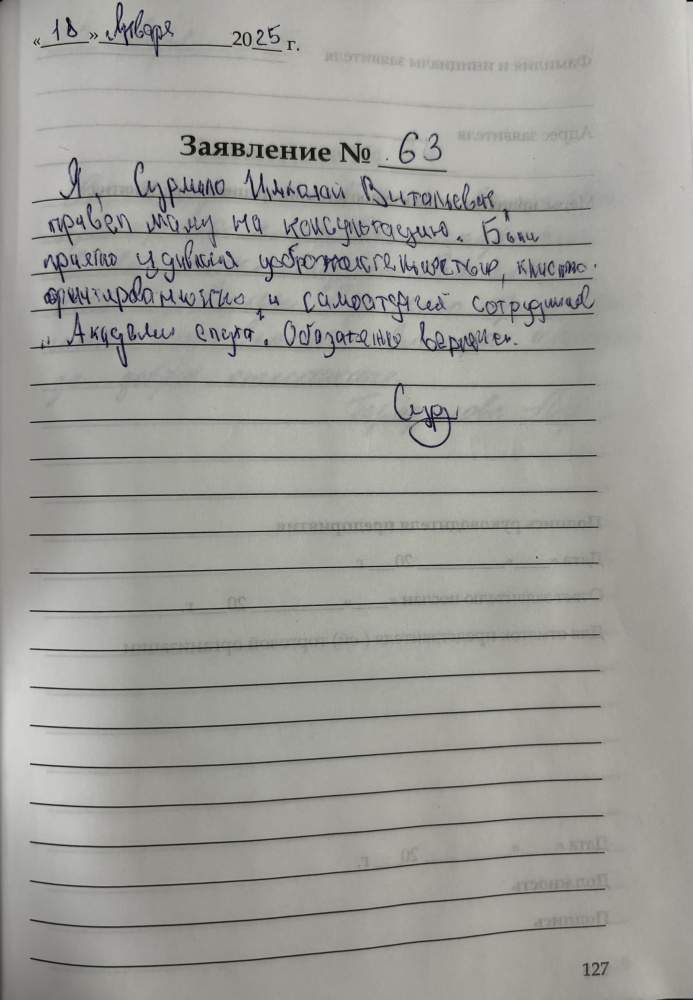 « 18 » Января 2025 г.
Заявление № 63
Я, Сурмило Николай Витальевич
привел маму на консультацию. Были
приятно удивлен доброжелательностью, клиенто-
ориентированностью и самоотдачей сотрудников
„Академии слуха“. Обязательно вернемся.
Сур
127